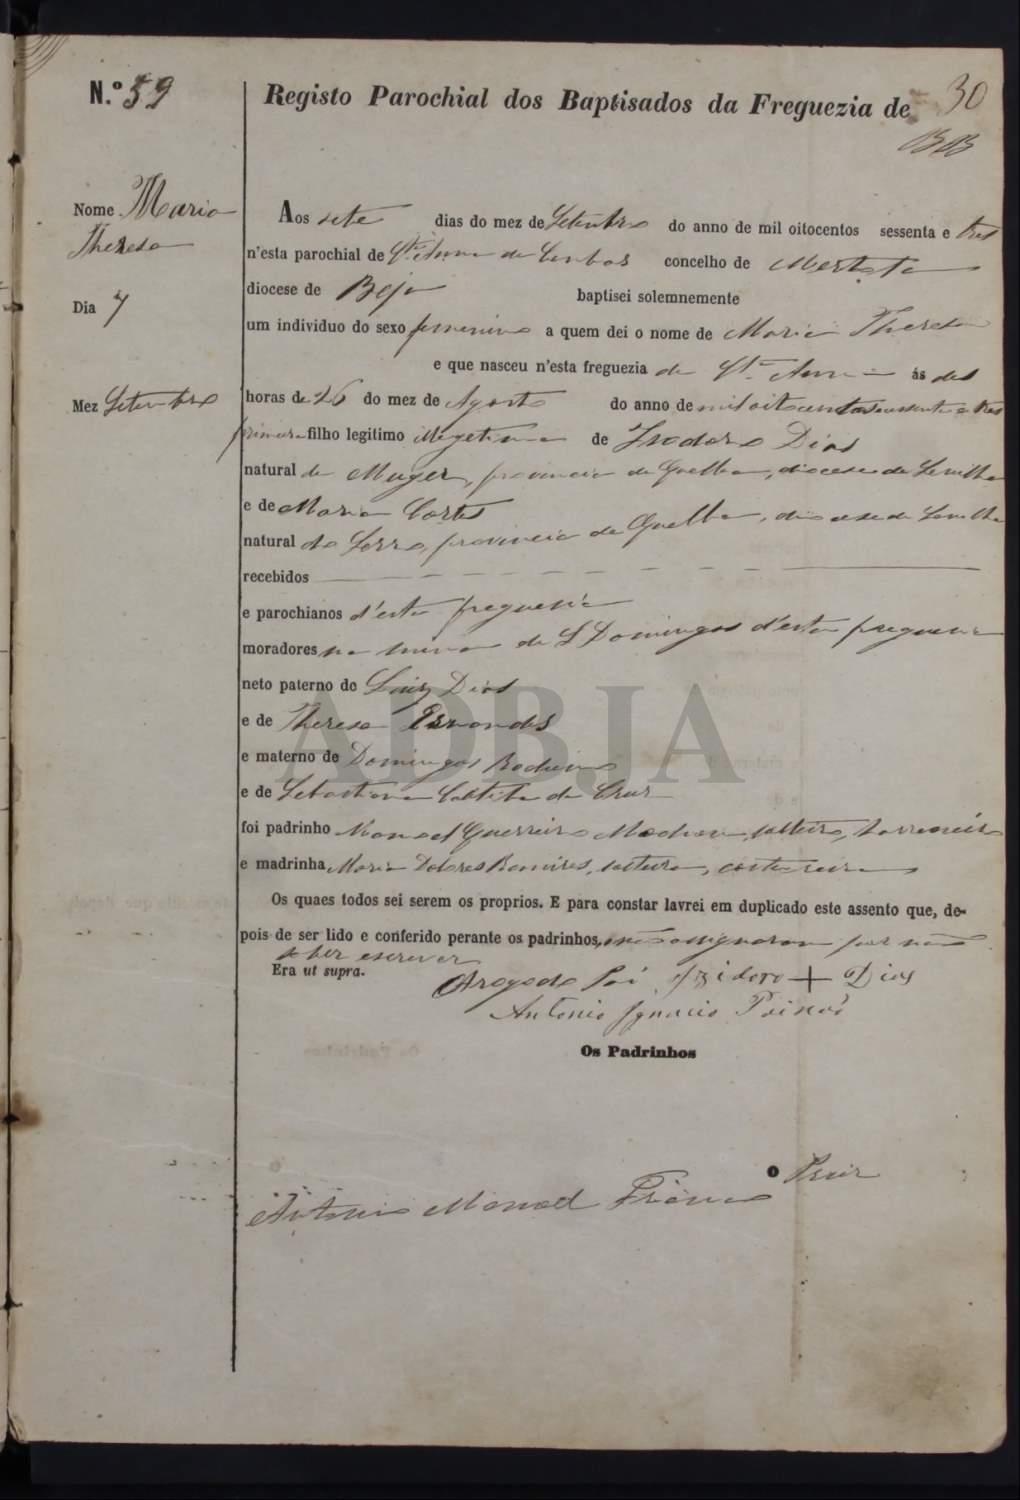 N.º 59
Registo Parochial dos Baptisados da Freguezia de
30
Nome Maria
Theresa
Dia 7
Mez Setembro
Aos sete dias do mez de Setembro do anno de mil oitocentos sessenta e tres
n'esta parochial de Stª Anna de Cambas concelho de Mertola
diocese de Beja baptisei solemnemente
um individuo do sexo femenino a quem dei o nome de Maria Theresa
e que nasceu n'esta freguezia de Stª Anna ás des
horas de 26 do mez de Agosto do anno de mil oitocentos sessenta e tres
primera filho legitimo de Isodoro Dias
natural de provincia de Guelba, diocese de Sevilha
e de Maria Cortes
natural do Serro, provincia de Guelba, diocese de Sevilha
recebidos
e parochianos d'esta freguesia
moradores na mina de S Domingos d'esta freguesia
neto paterno de Luiz Dias
e de Theresa Ernandes
e materno de Domingos
e de Sebastiana da Cruz
foi padrinho Manoel Guerreiro solteiro,
e madrinha Maria Dolores Ramires, solteira, costureira
Os quaes todos sei serem os proprios. E para constar lavrei em duplicado este assento que, de-
pois de ser lido e conferido perante os padrinhos, não assignaram por não
saber escrever
Era ut supra.
Arogo do Pai Izidoro + Dias
Antonio Ignacio
Os Padrinhos
O Prior
Antonio Manoel
ADBJA